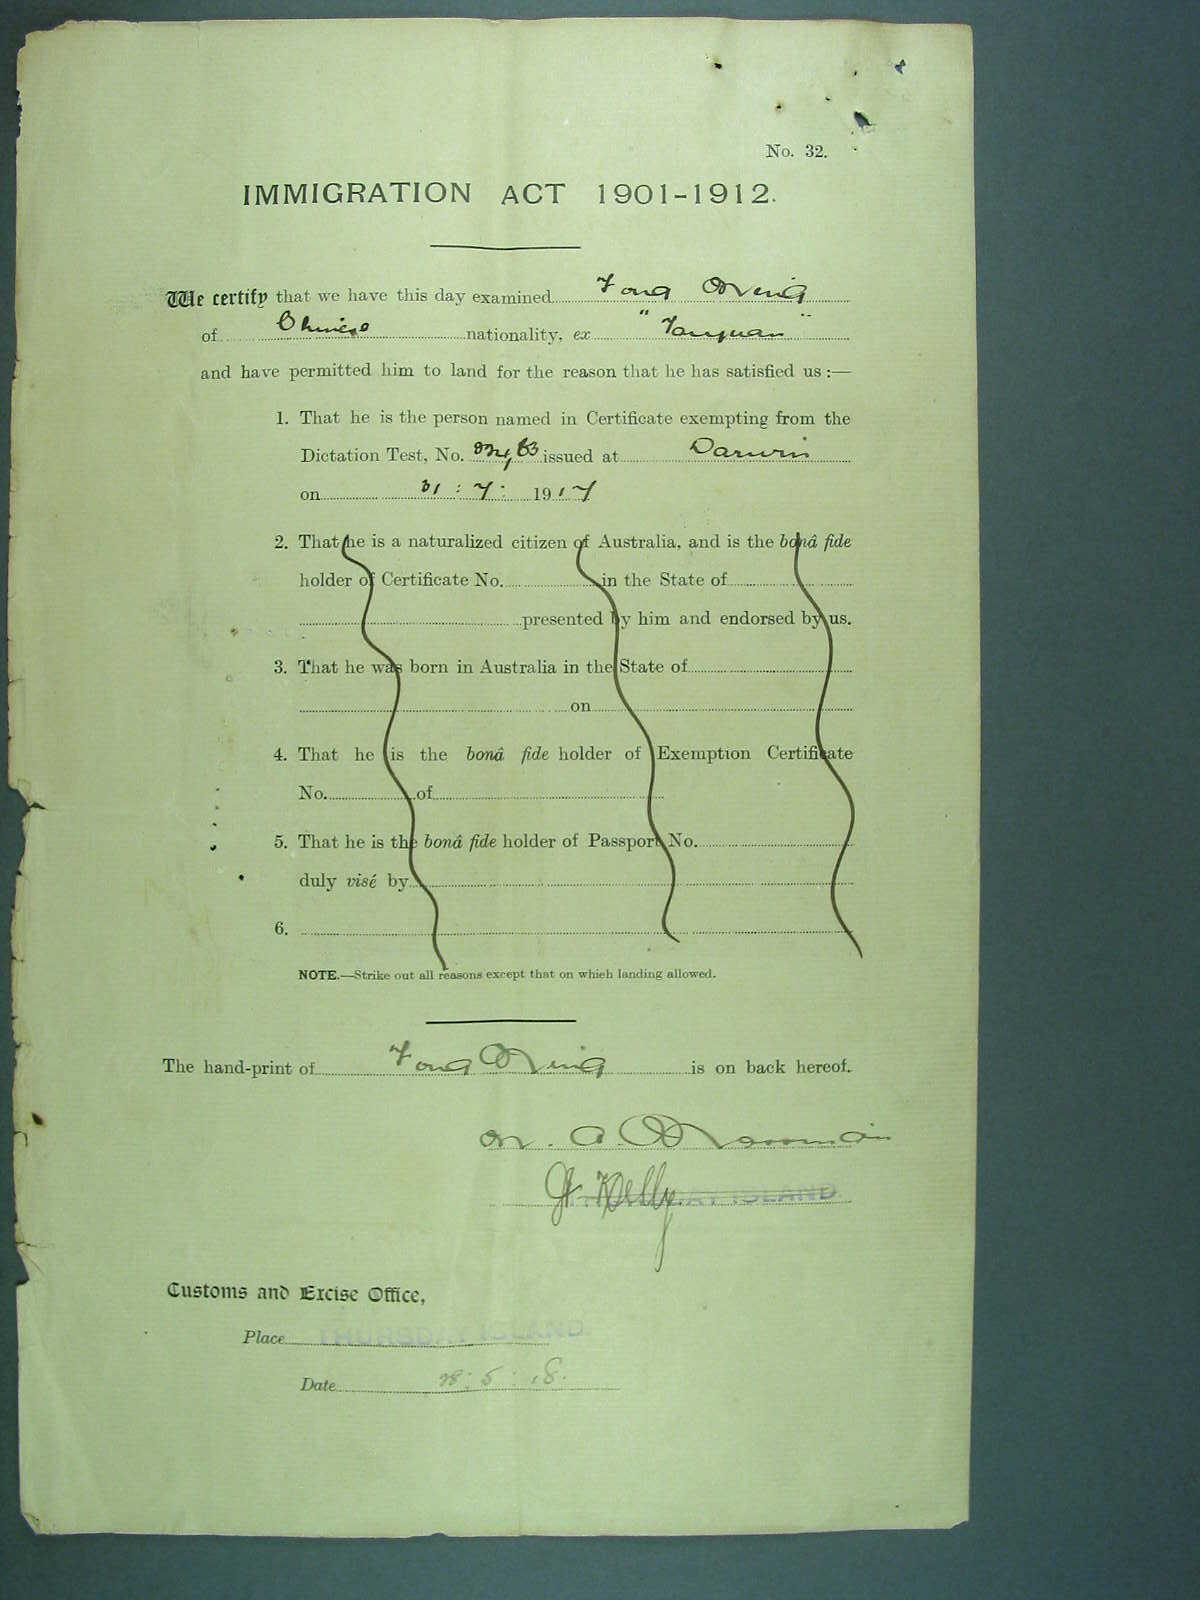 No. 32.
IMMIGRATION ACT 1901-1912.
We certify that we have this day examined Fong
of Chinese nationality, ex "Taiyuan"
and have permitted him to land for the reason that he has satisfied us :—
1. That he is the person named in Certificate exempting from the
Dictation Test, No. issued at Darwin
on 31 : 7 : 1917
2. That he is a naturalized citizen of Australia, and is the bonâ fide
holder of Certificate No. in the State of
presented by him and endorsed by us.
3. That he was born in Australia in the State of
on
4. That he is the bonâ fide holder of Exemption Certificate
No. of
5. That he is the bonâ fide holder of Passport No.
duly visé by
6.
NOTE.—Strike out all reasons except that on which landing allowed.
The hand-print of Fong is on back hereof.
Kelly
THURSDAY ISLAND
Customs and Excise Office,
Place THURSDAY ISLAND
Date 28 : 5 : 18.